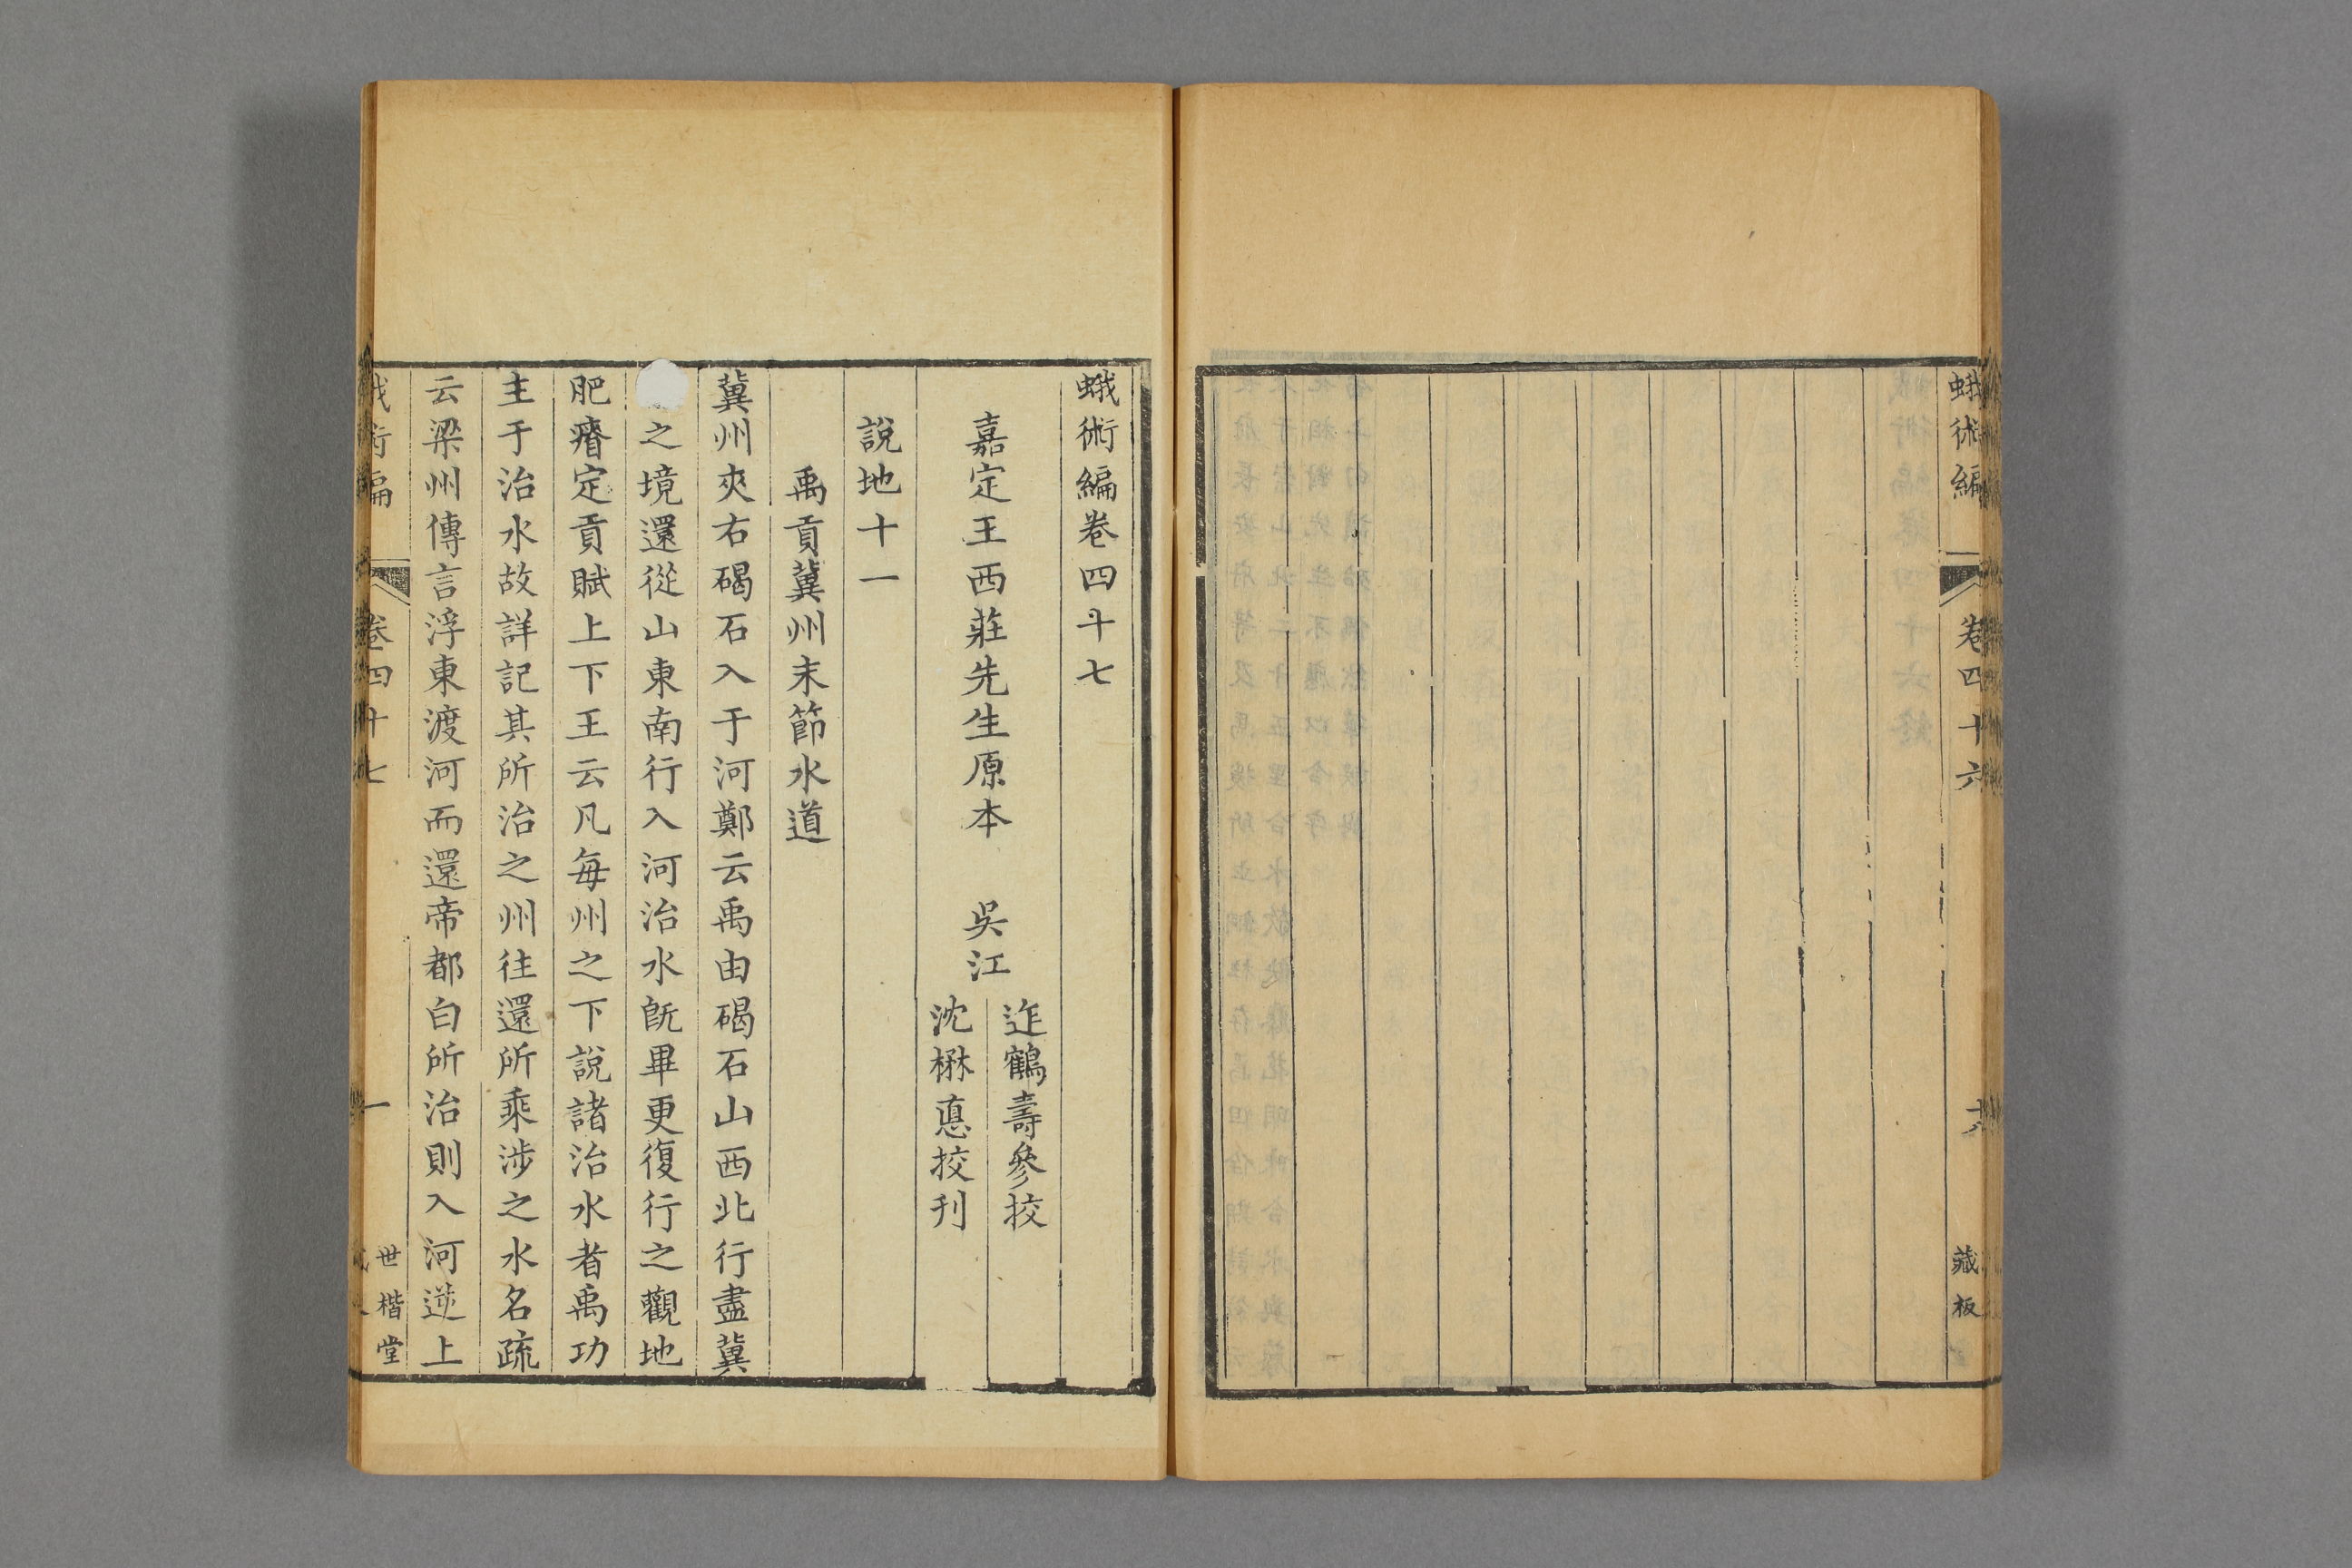 蛾術編
卷四十六
藏板
蛾術編卷四十七
嘉定王西莊先生原本
吳江
迮鶴壽參挍
沈楙悳挍刊
說地十一
禹貢冀州末節水道
冀州夾右碣石入于河鄭云禹由碣石山西北行盡冀
之境還從山東南行入河治水旣畢更復行之觀地
肥瘠定貢賦上下王云凡每州之下說諸治水者禹功
主于治水故詳記其所治之州往還所乘涉之水名疏
云梁州傳言浮東渡河而還帝都白所治則入河逆上
蛾術編
卷四十七
一
世楷堂